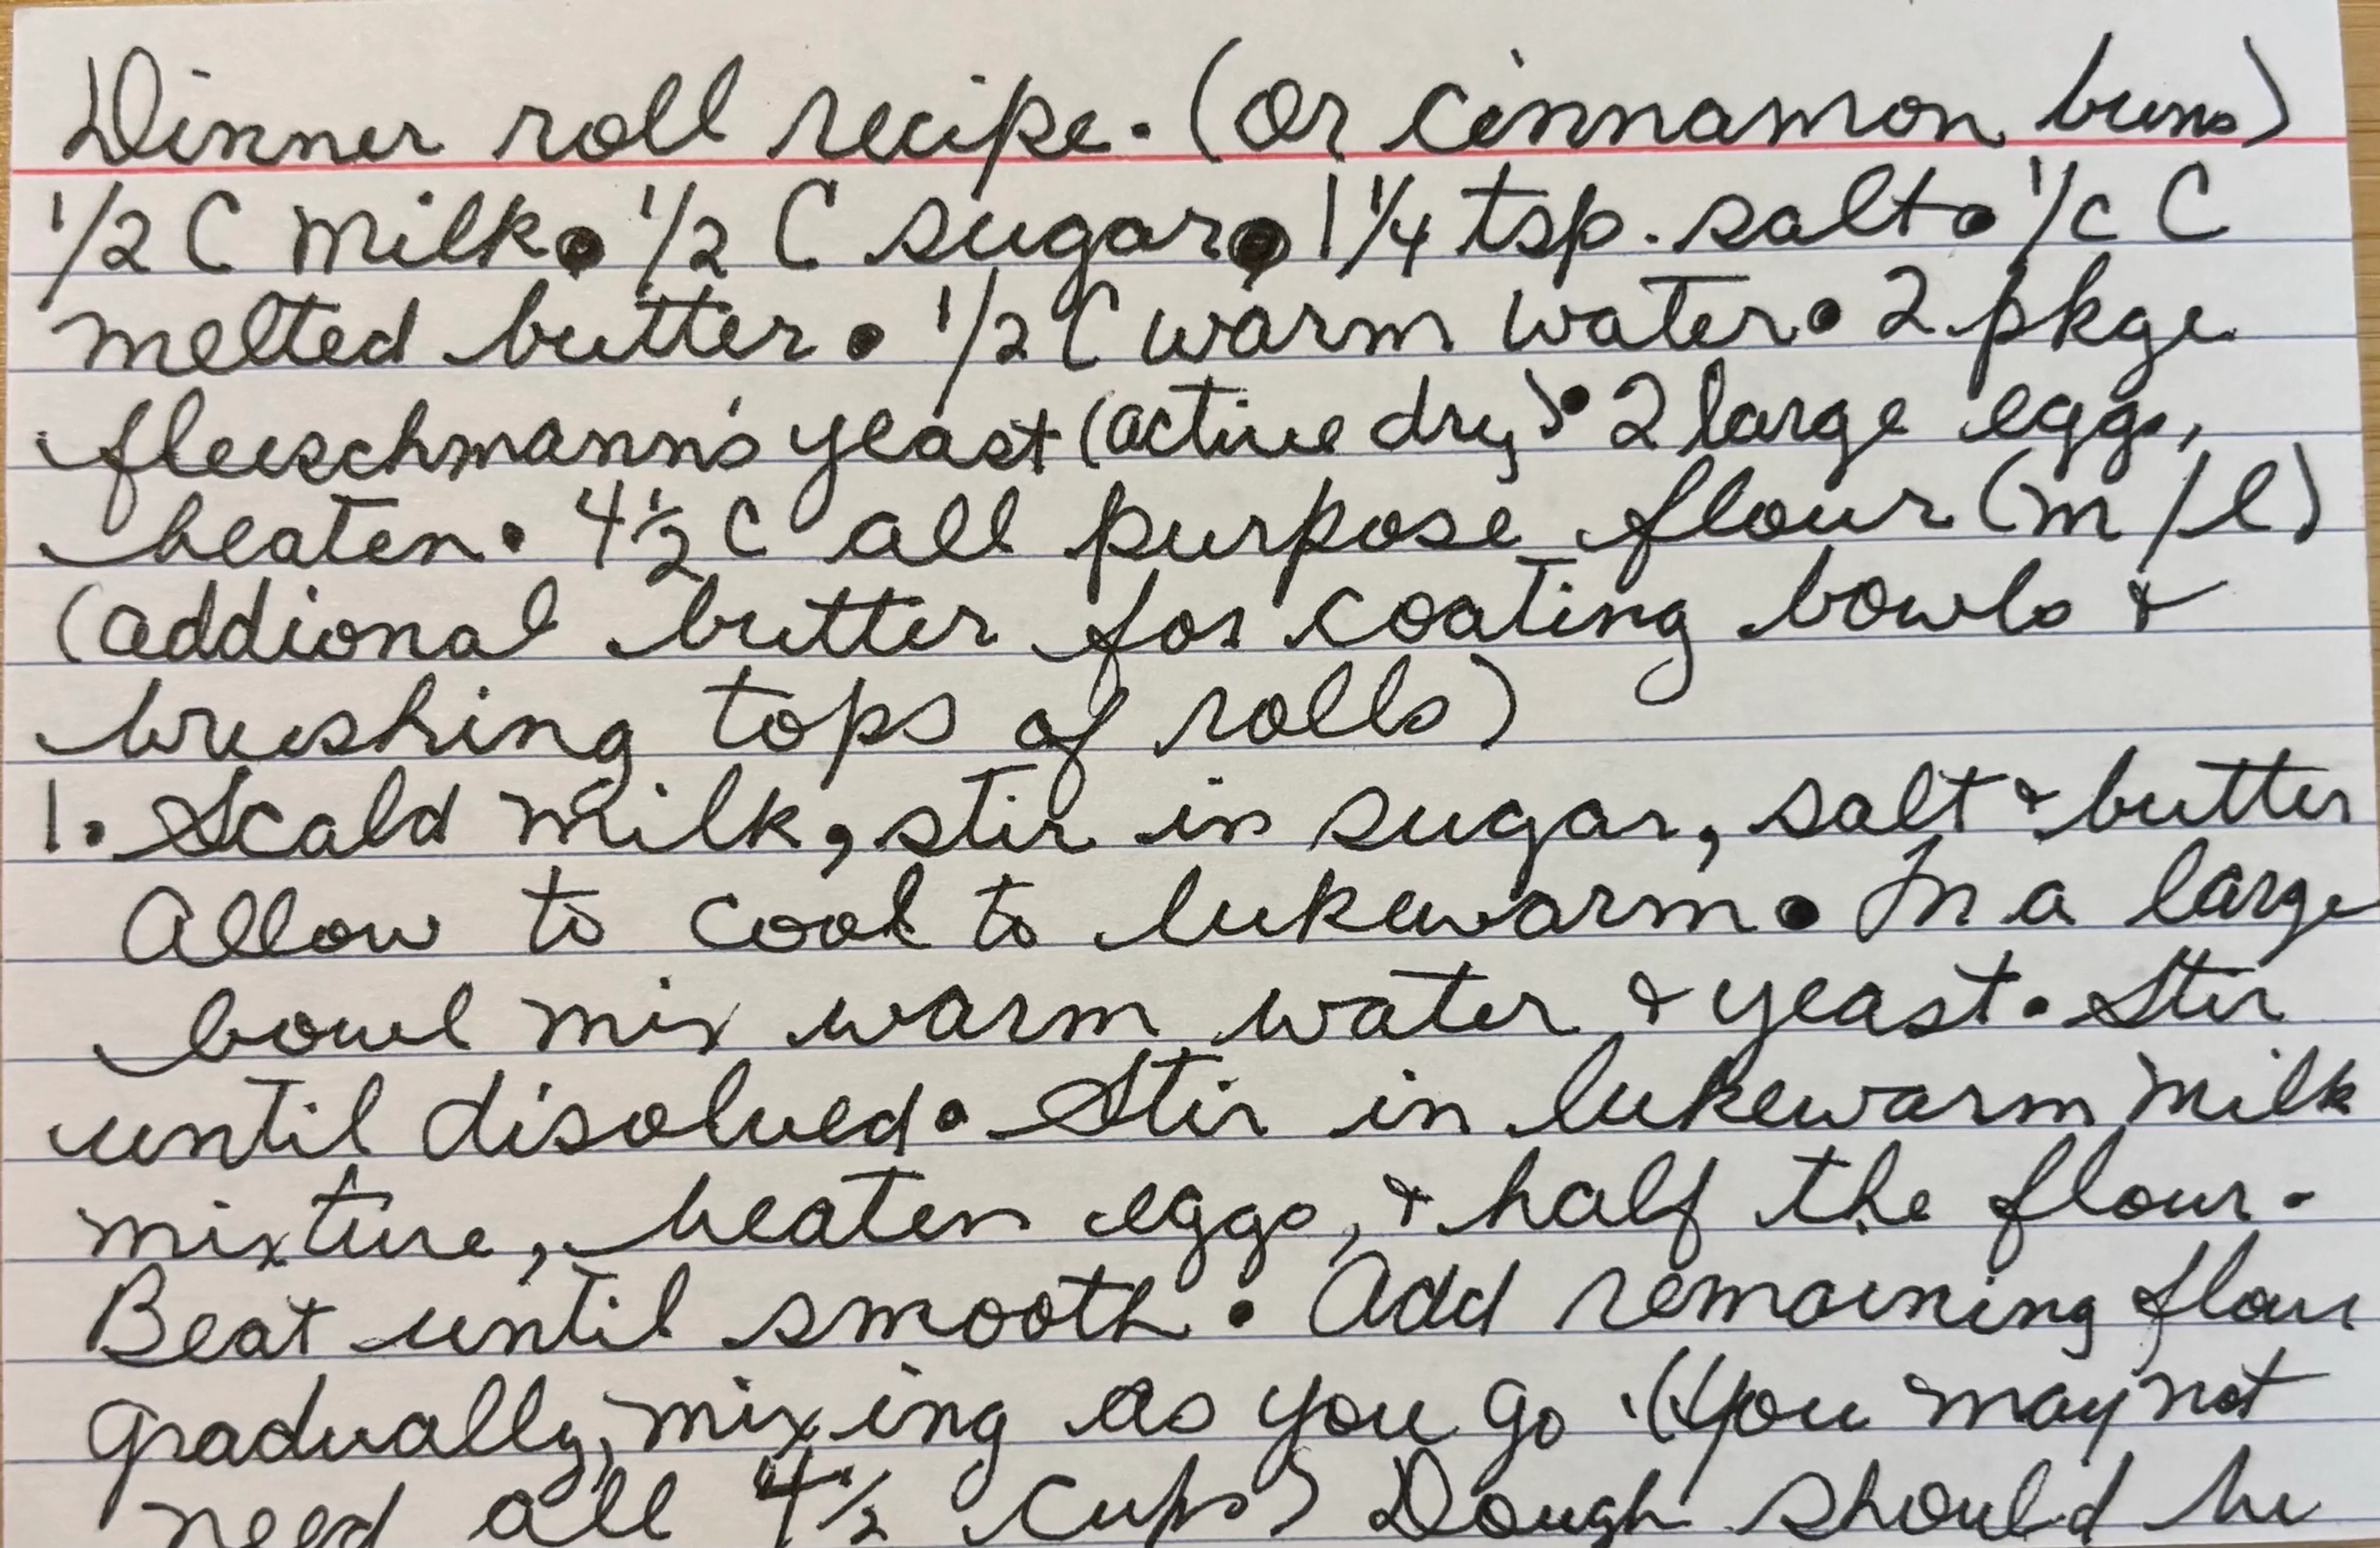 Dinner roll recipe. (Or cinnamon buns)
1/2 C milk • 1/2 C sugar • 1 1/4 tsp. salt • 1/c C
melted butter • 1/2 C warm water • 2 pkge
fleischmann's yeast (active dry) • 2 large eggs,
beaten • 4 1/2 C all purpose flour (m/l)
(addional butter for coating bowls &
brushing tops of rolls)
1. Scald milk, stir in sugar, salt & butter
Allow to cool to lukewarm. In a large
bowl mix warm water & yeast. Stir
until disolved. Stir in lukewarm milk
mixture, beaten eggs, & half the flour.
Beat until smooth. Add remaining flour
gradually, mixing as you go. (You may not
need all 4 1/2 cups) Dough should be